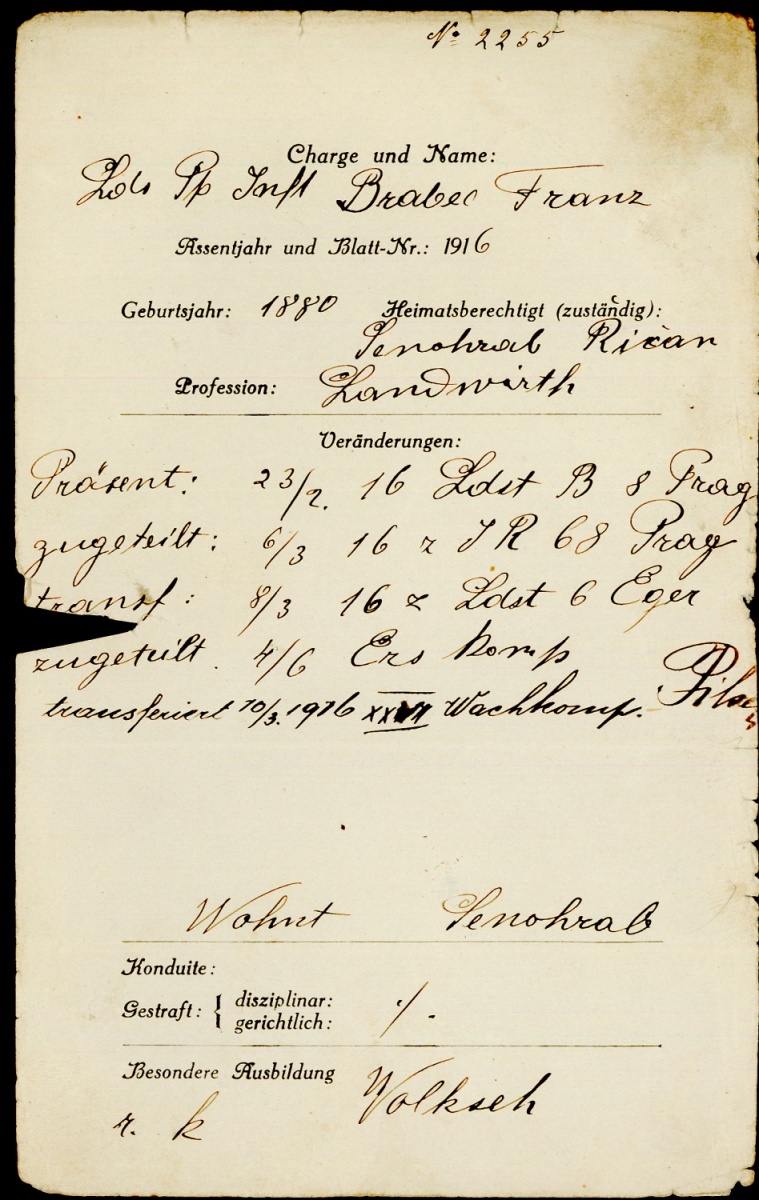 № 2255
Charge und Name:
Lds Pf Inft Brabec Franz
Assentjahr und Blatt-Nr.: 1916
Geburtsjahr: 1880 Heimatsberechtigt (zuständig):
Senohrab Ričan
Profession: Landwirth
Veränderungen:
Präsent: 23/2. 16 Ldst B 8 Prag
zugeteilt: 6/3 16 z IR 68 Prag
transf: 8/3 16 z Ldst 6 Eger
zugeteilt. 4/6 Ers Komp
transferiert 10/3. 1916 Wachkomp. Pilsen
Wohnt Senohrab
Konduite:
Gestraft: { disziplinar:
gerichtlich: ·/.
Besondere Ausbildung Volksch
r. k